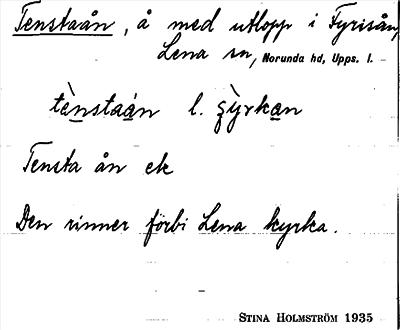 Tenstaån, å med utlopp i Fyrisån,
Lena sn, Norunda hd, Upps. l.
tènstaán l. şỳrkan
Tensta ån ek
Den rinner förbi Lena kyrka.
STINA HOLMSTRÖM 1935